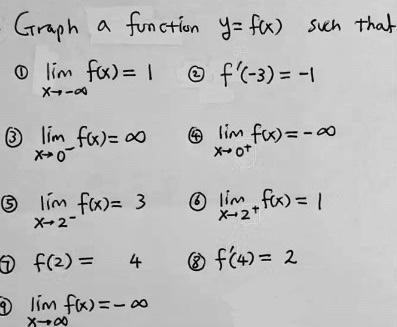 Graph a function y = f(x) such that
① lim x→-∞ f(x) = 1 ② f'(-3) = -1
③ lim x→0⁻ f(x) = ∞ ④ lim x→0⁺ f(x) = -∞
⑤ lim x→2⁻ f(x) = 3 ⑥ lim x→2⁺ f(x) = 1
⑦ f(2) = 4 ⑧ f'(4) = 2
⑨ lim x→∞ f(x) = -∞